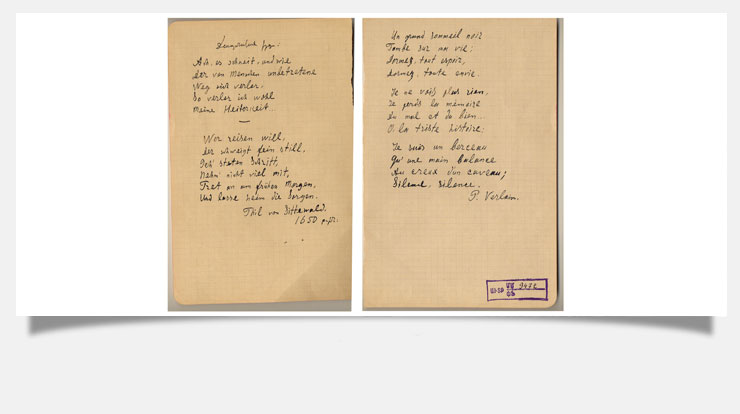 Ach, es schneit, und wie
der von Menschen unbetretene
Weg sich verlor,
So verlor ich wohl
meine Heiterkeit..
Wer reisen will,
der schweigt fein still,
Geh' steten Schritt,
Nehm' nicht viel mit,
Tret an am frühen Morgen,
Und lasse heim die Sorgen.
Phil von Sittewald.
1650
Un grand sommeil noir
Tombe sur ma vie:
Dormez, tout espoir,
dormez, toute envie.
Je ne vois plus rien,
Je perds la mémoire
du mal et du bien...
O la triste histoire!
Je suis un berceau
Qu'une main balance
Au creux d'un caveau;
Silence, silence.
P. Verlain.
III-SP
9482